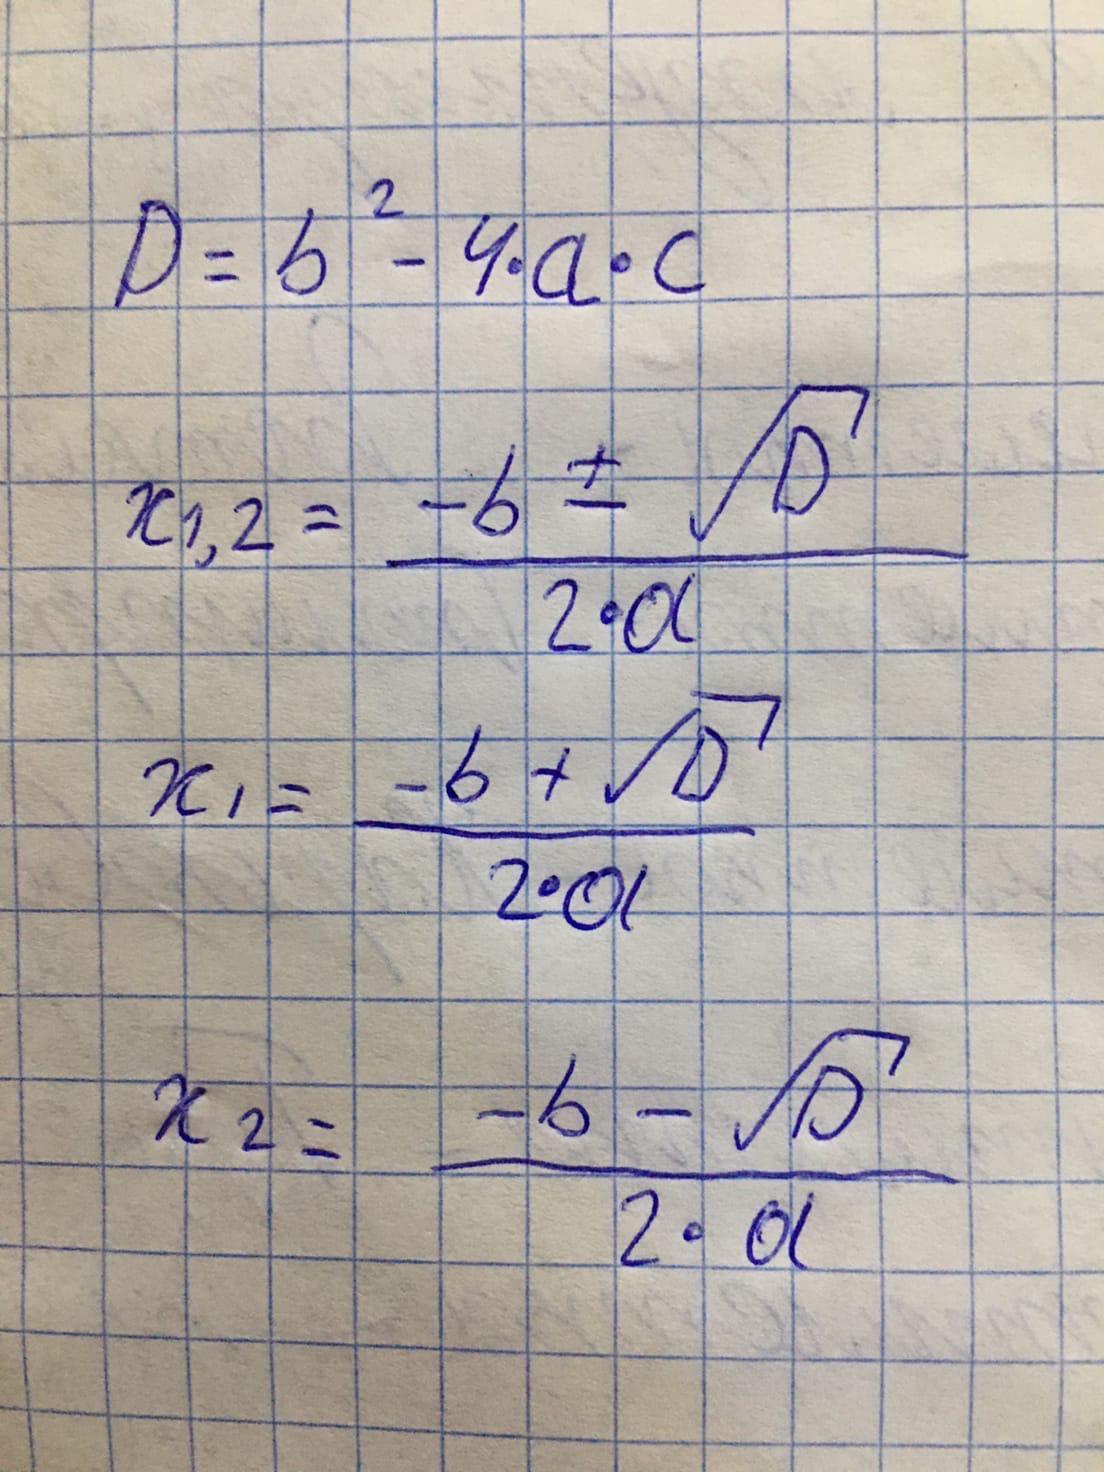 D = b² - 4·a·c
x1,2 = (-b ± √D) / (2·a)
x1 = (-b + √D) / (2·a)
x2 = (-b - √D) / (2·a)